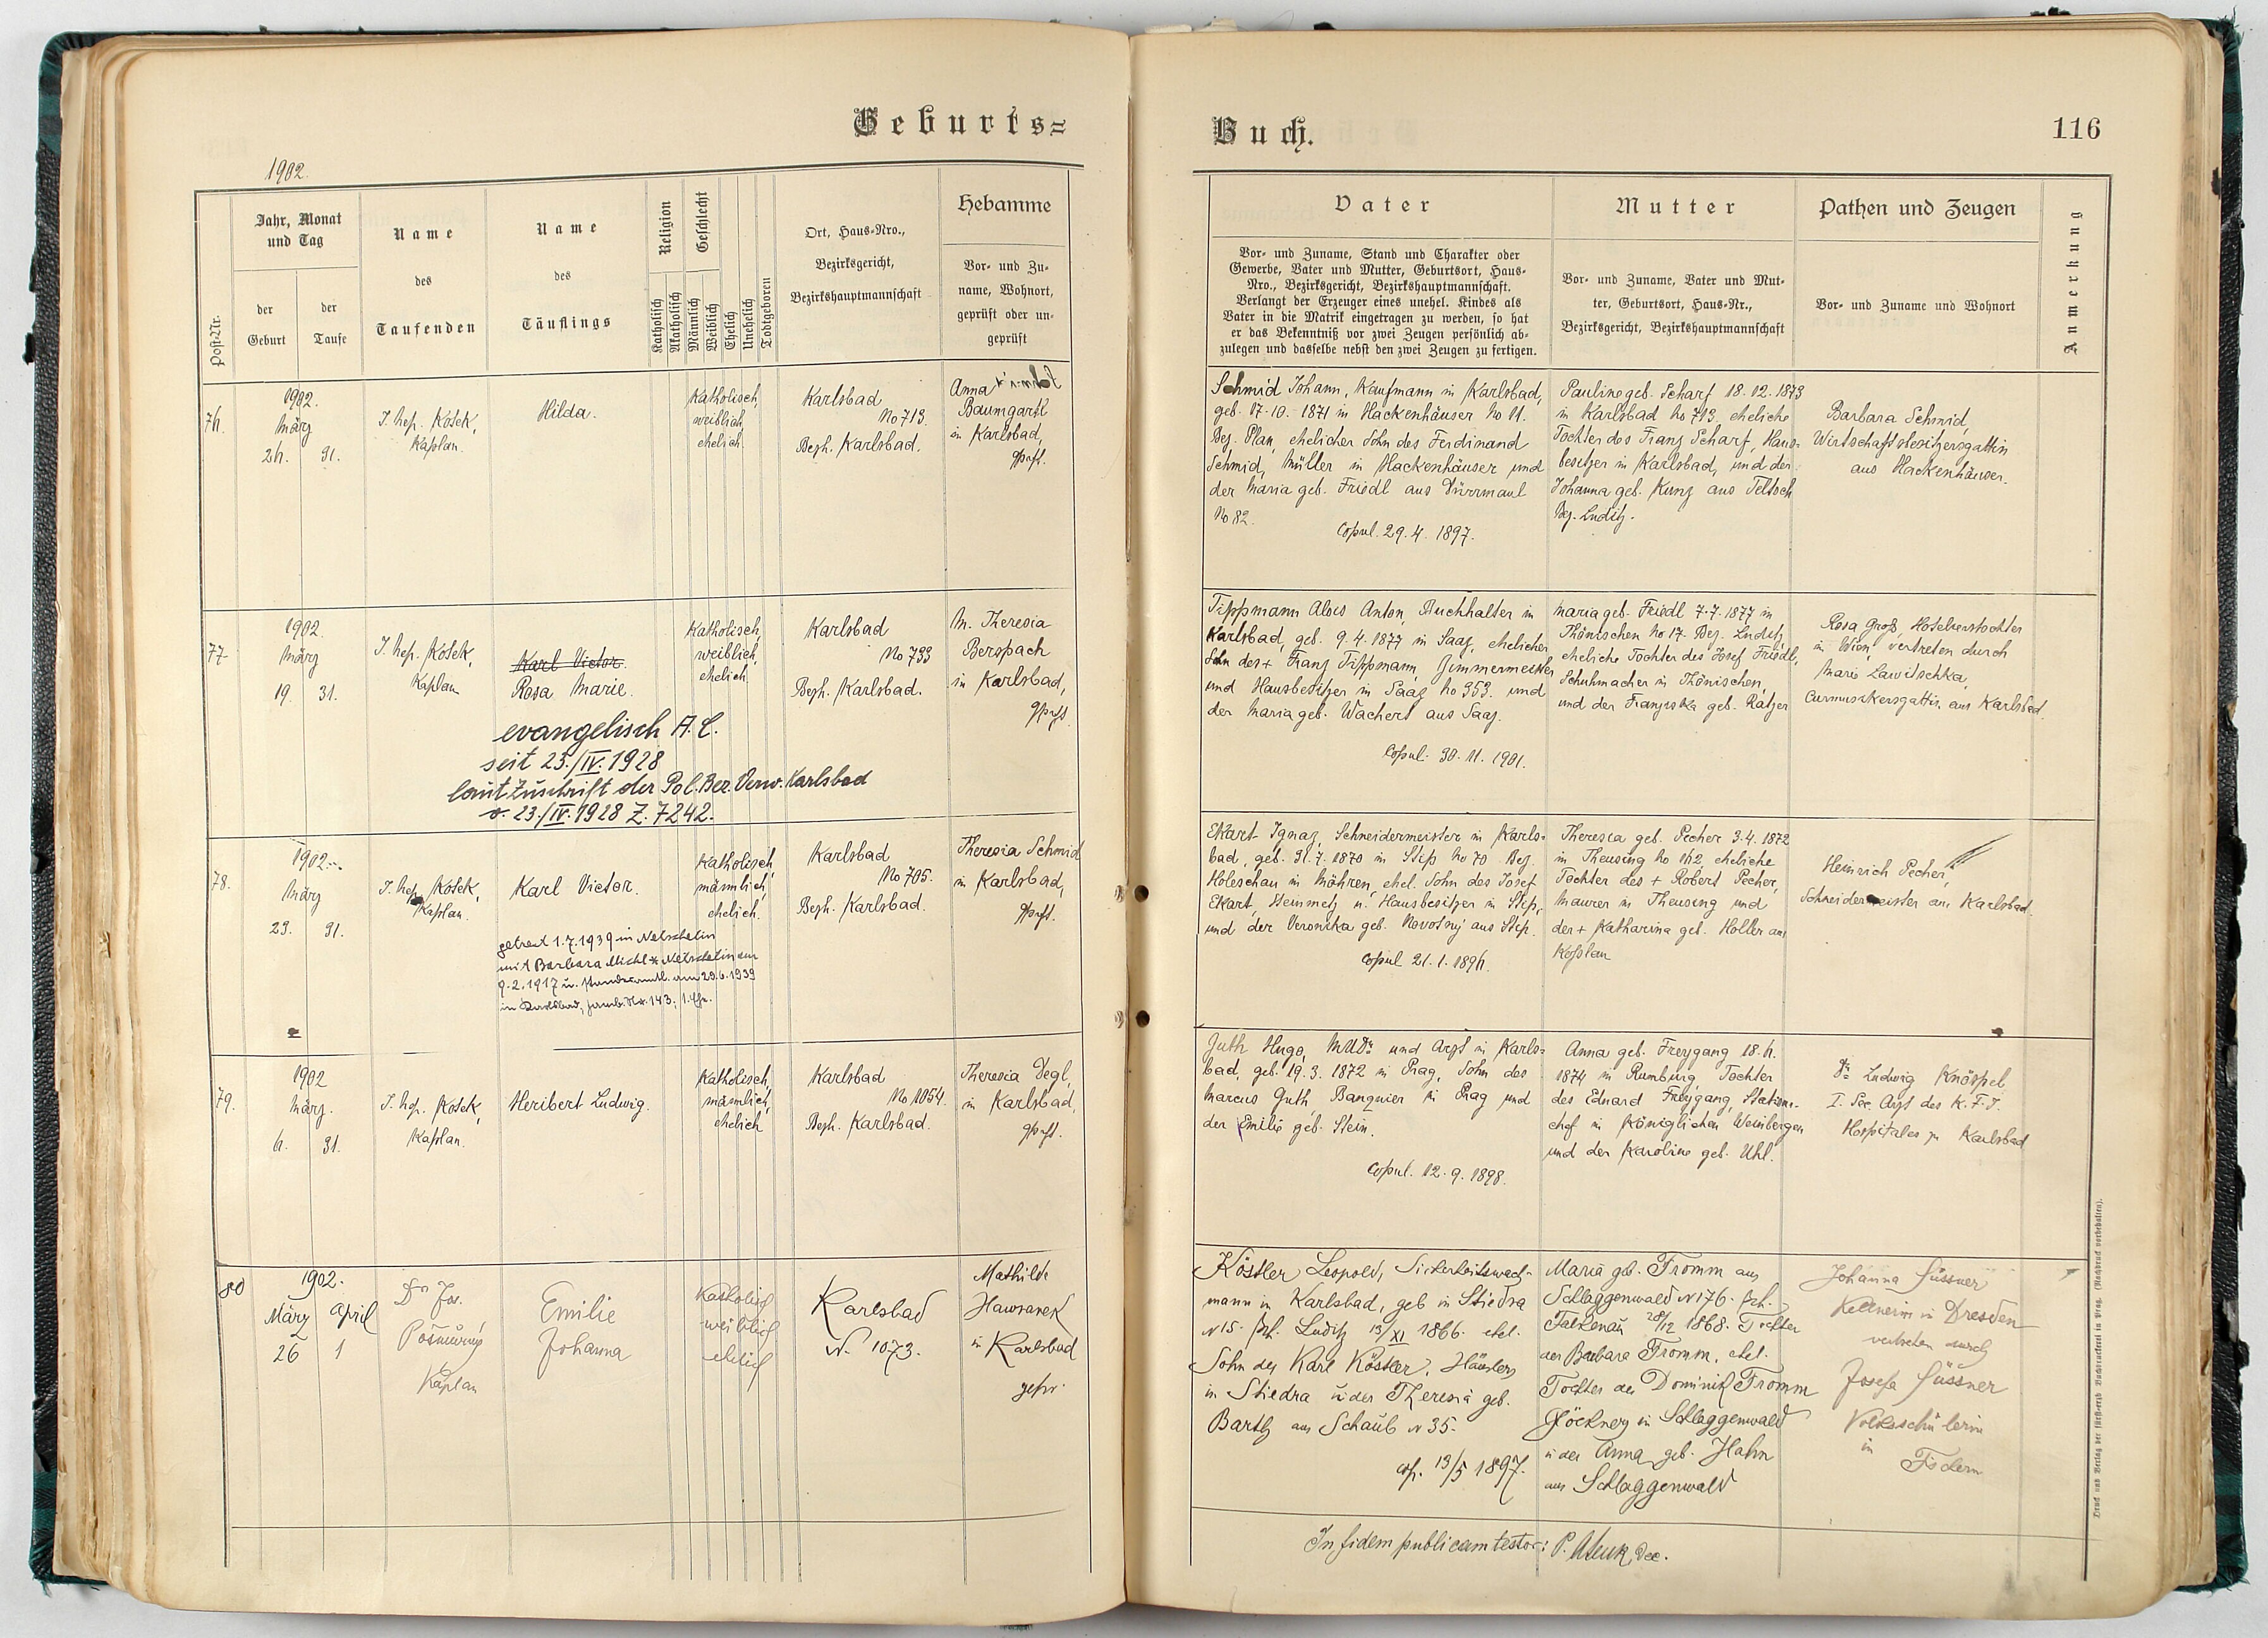 Geburts=
1902.
Post-Nr.
Jahr, Monat
und Tag
der
Geburt
der
Taufe
Name
des
Taufenden
Name
des
Täuflings
Religion
Katholisch
Akatholisch
Geschlecht
Männlich
Weiblich
Ehelich
Unehelich
Todtgeboren
Ort, Haus-Nro.,
Bezirksgericht,
Bezirkshauptmannschaft
Hebamme
Vor- und Zu-
name, Wohnort,
geprüft oder un-
geprüft
76.
1902.
März
24. 31.
J. Nep. Kosek,
Kaplan.
Hilda.
Katholisch,
weiblich,
ehelich.
Karlsbad
No 713.
Bezh. Karlsbad.
Anna
Baumgartl
in Karlsbad,
gprft.
77
1902.
März
19. 31.
J. Nep. Kosek,
Kaplan
Karl Victor.
Rosa Marie.
evangelisch A. C.
seit 23./IV. 1928
laut Zuschrift der Pol. Bez. Verw. Karlsbad
v. 23./IV. 1928 Z. 7242.
Katholisch,
weiblich,
ehelich
Karlsbad
No 733
Bezh. Karlsbad.
M. Theresia
Berspach
in Karlsbad,
gprft.
78.
1902.
März
23. 31.
J. Nep. Kosek,
Kaplan.
Karl Victor.
getraut 1.7.1939 in Netschetin
mit Barbara Michl * Netschetin am
9.2.1917 u. standesamtl. am 29.6.1939
in Karlsbad,
Katholisch,
männlich,
ehelich.
Karlsbad
No 705.
Bezh. Karlsbad.
Theresia Schmid
in Karlsbad,
gprft.
79.
1902
März.
6. 31.
J. Nep. Kosek,
Kaplan.
Heribert Ludwig.
Katholisch,
männlich,
ehelich
Karlsbad
No 1054.
Bezh. Karlsbad.
Theresia Degl,
in Karlsbad,
gprft.
80
1902.
März April
26 1
Dr. Jos.
Kaplan
Emilie
Johanna
Katholisch
weiblich
ehelich
Karlsbad
N. 1073.
Mathilde
Hawranek
in Karlsbad
gepr.
Buch.
116
Vater
Vor- und Zuname, Stand und Charakter oder
Gewerbe, Vater und Mutter, Geburtsort, Haus-
Nro., Bezirksgericht, Bezirkshauptmannschaft.
Verlangt der Erzeuger eines unehel. Kindes als
Vater in die Matrik eingetragen zu werden, so hat
er das Bekenntniß vor zwei Zeugen persönlich ab-
zulegen und dasselbe nebst den zwei Zeugen zu fertigen.
Mutter
Vor- und Zuname, Vater und Mut-
ter, Geburtsort, Haus-Nr.,
Bezirksgericht, Bezirkshauptmannschaft
Pathen und Zeugen
Vor- und Zuname und Wohnort
Anmerkung
Schmid Johann, Kaufmann in Karlsbad,
geb. 17.10.1871 in Hackenhäuser No 11.
Bez. Plan, ehelicher Sohn des Ferdinand
Schmid, Müller in Hackenhäuser und
der Maria geb. Friedl aus Dürrmaul
No 82.
Copul. 29.4.1897.
Pauline geb. Scharf 18.12.1873
in Karlsbad No 713, eheliche
Tochter des Franz Scharf, Haus-
besitzer in Karlsbad, und der
Johanna geb. Kunz aus Teltsch
Bez. Luditz.
Barbara Schmid,
Wirtschaftsbesitzersgattin
aus Hackenhäuser.
Tippmann Alois Anton, Buchhalter in
Karlsbad, geb. 9.4.1877 in Saaz, ehelicher
Sohn des + Franz Tippmann, Zimmermeister
und Hausbesitzer in Saaz No 353. und
der Maria geb. Wachert aus Saaz.
Copul. 30.11.1901.
Maria geb. Friedl 7.7.1877 in
Thönischen No 17. Bez. Luditz,
eheliche Tochter des Josef Friedl,
Schuhmacher in Thönischen,
und der Franziska geb. Ratzer
Rosa Groß, Hotelierstochter
in Wien, vertreten durch
Marie Lawitschka,
Curmusikersgattin aus Karlsbad.
Ekart Ignaz, Schneidermeister in Karls-
bad, geb. 31.7.1870 in Stip No 70. Bez.
Holeschau in Mähren, ehel. Sohn des Josef
Ekart, Steinmetz u. Hausbesitzer in Stip,
und der Veronika geb. Novotný aus Stip.
Copul 21.1.1896.
Theresia geb. Pecher 3.4.1872
in Theusing No 162, eheliche
Tochter des + Robert Pecher,
Maurer in Theusing und
der + Katharina geb. Holler aus
Kosslau
Heinrich Pecher,
Schneidermeister aus Karlsbad.
Guth Hugo, MUDr. und Arzt in Karls-
bad, geb. 19.3.1872 in Prag, Sohn des
Marcus Guth, Banquier in Prag und
der Emilie geb. Stein.
Copul. 12.9.1898.
Anna geb. Freygang 18.6.
1874 in Rumburg, Tochter
des Eduard Freygang, Stations-
chef in Königlichen Weinbergen
und der Karoline geb. Uhl.
Dr. Ludwig Knöspel
I. Sec. Arzt des K. F. J.
Hospitales zu Karlsbad
Köstler Leopold, Sicherheitswach-
mann in Karlsbad, geb in Stiedra
N 15. Luditz 13/XI 1866. ehel.
Sohn des Karl Köstler, Häuslers
in Stiedra u. der Theresia geb.
Barth aus Schaub N 35.
cop. 13/5 1897.
Maria geb. Fromm aus
Schlaggenwald N 176.
Falkenau 28/12 1868. Tochter
der Barbara Fromm, ehel.
Tochter des Dominik Fromm
Glöckners in Schlaggenwald
u. der Anna geb. Hahn
aus Schlaggenwald
Johanna Füssner
Kellnerin in Dresden
vertreten durch
Josefa Füssner
Volksschülerin
in Fischern
In fidem publicam testor: P. Dec.
Druck und Verlag der fürst-erzb. Buchdruckerei in Prag. (Nachdruck vorbehalten).